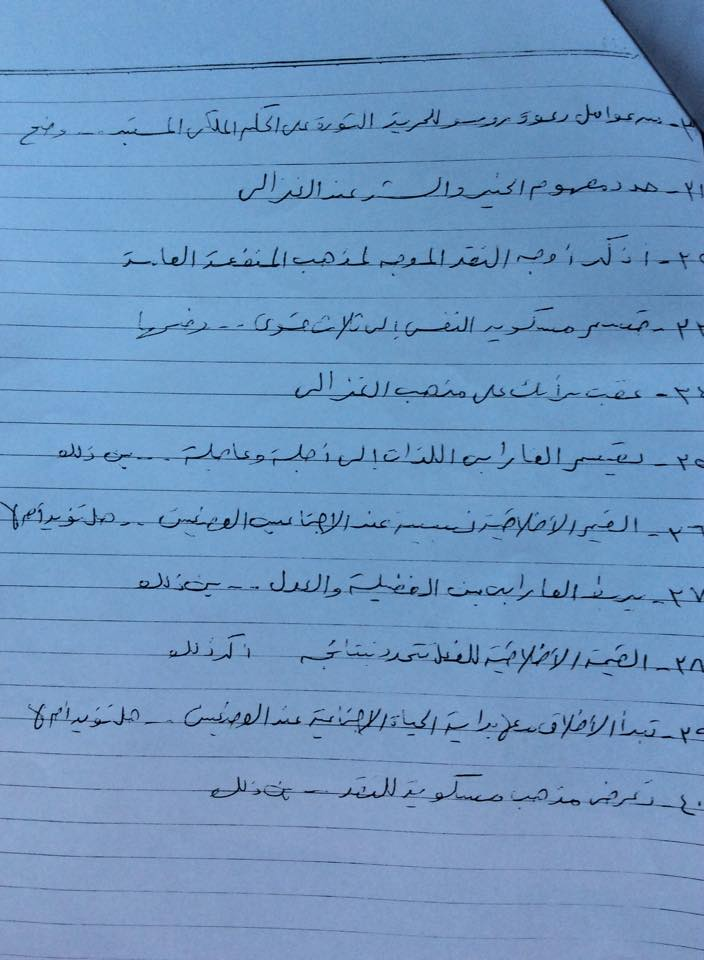 ٣٠- من عوامل دعوة روسو للحرية الثورة على الحكم الملكى المستبد -- وضح
٣١- حدد مفهوم الخير والشر عند الغزالى
٣٢- اذكر أوجه النقد الموجه لمذهب المنفعة العامة
٣٣- تقسم مسكويه النفس إلى ثلاث قوى -- وضحها
٣٤- عقب برأيك على مذهب الغزالى
٣٥- يقسم الفارابى اللذات إلى آجلة وعاجلة --- بين ذلك
٣٦- القيم الأخلاقية نسبية عند الاجتماعيين الوضعيين -- هل تؤيد أم لا
٣٧- يربط الفارابى بين الفضيلة والعدل -- بين ذلك
٣٨- القيمة الأخلاقية للفعل تتحدد بنتائجه اذكر ذلك
٣٩- تبدأ الأخلاق مع بداية الحياة الاجتماعية عند الوضعيين -- هل تؤيد أم لا
٤٠- تعرض مذهب مسكوية للنقد -- بين ذلك